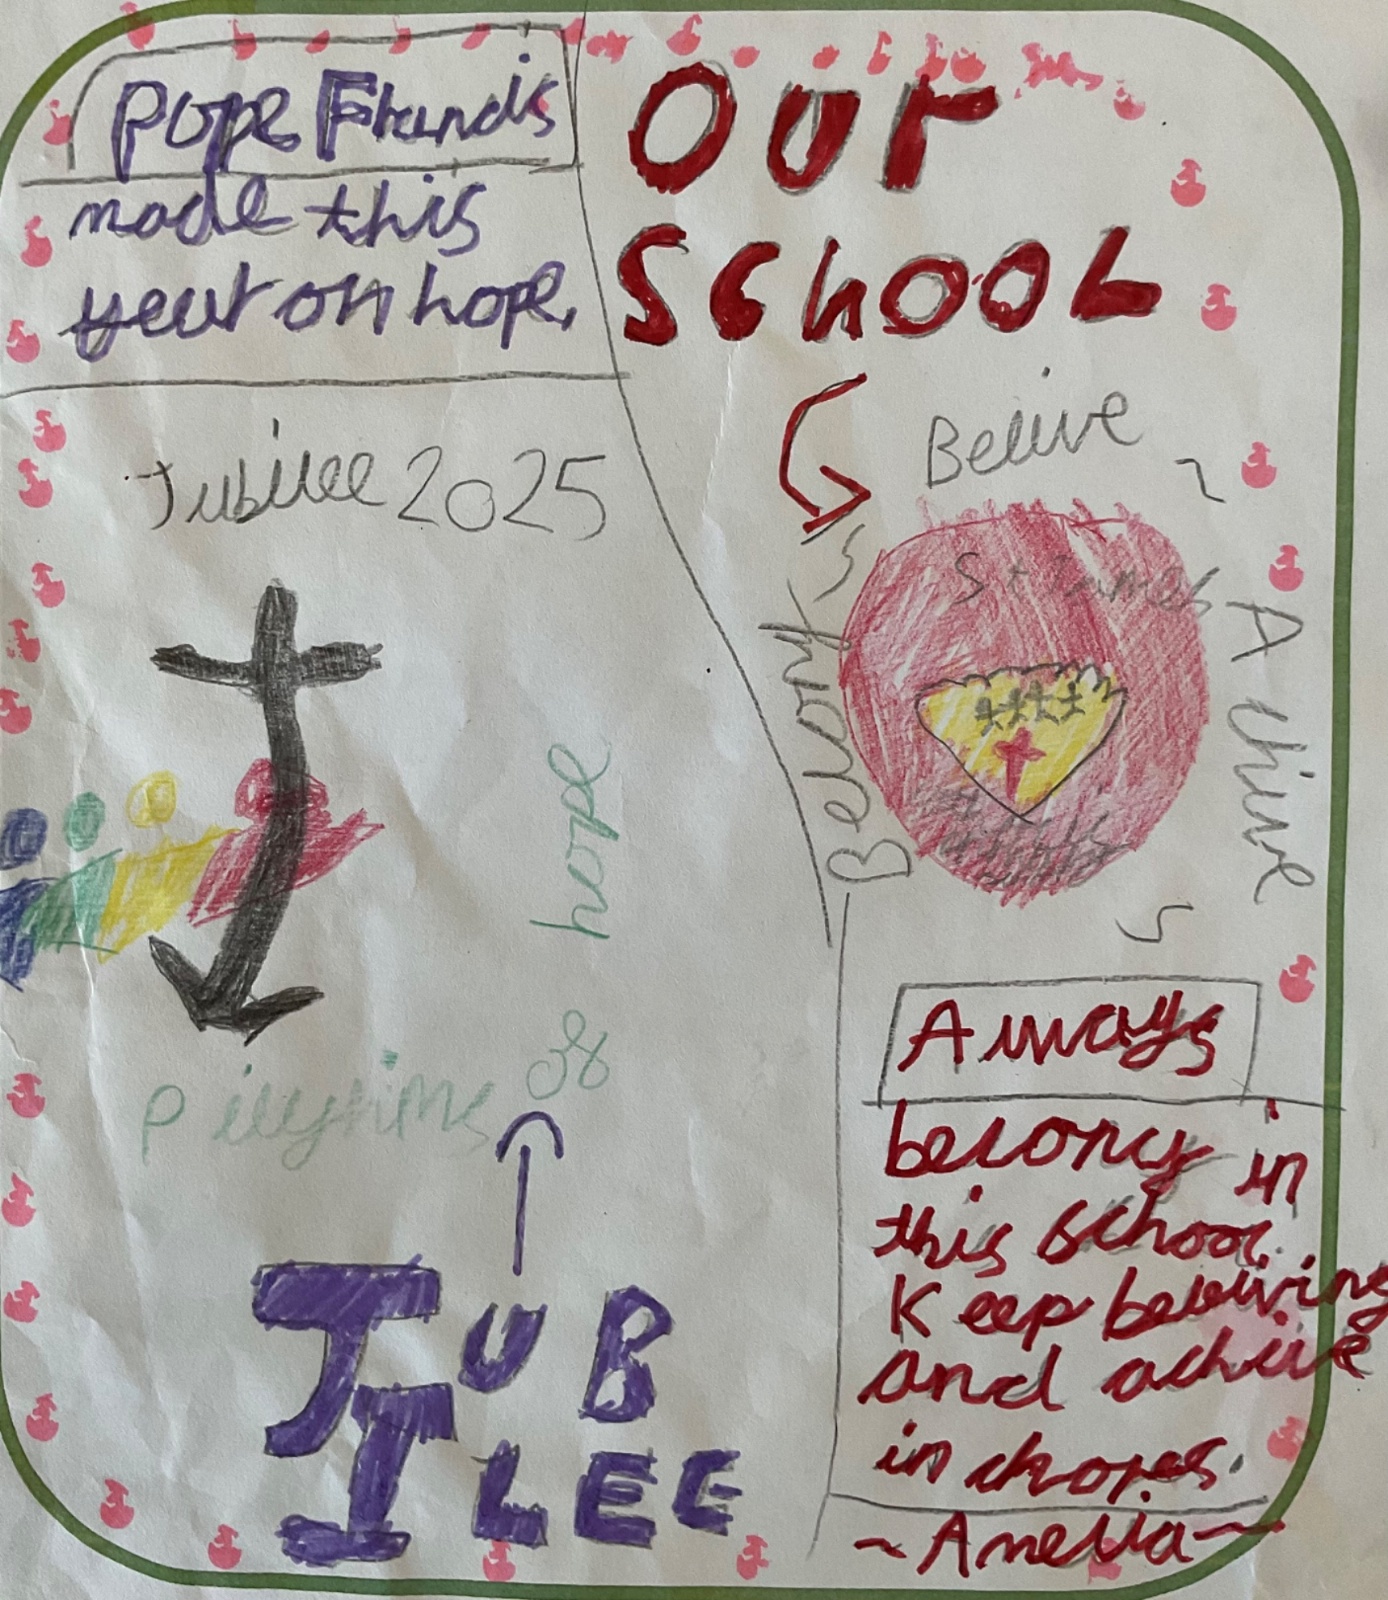 Pope Francis
made this
year on hope.
Jubilee 2025
Pilgrims of hope
JUB
ILEE
OUr
SChOOL
Belive
Achive
Belong
St James
Always
belong in
this school.
Keep beleiving
and achive
in chores.
~Amelia~